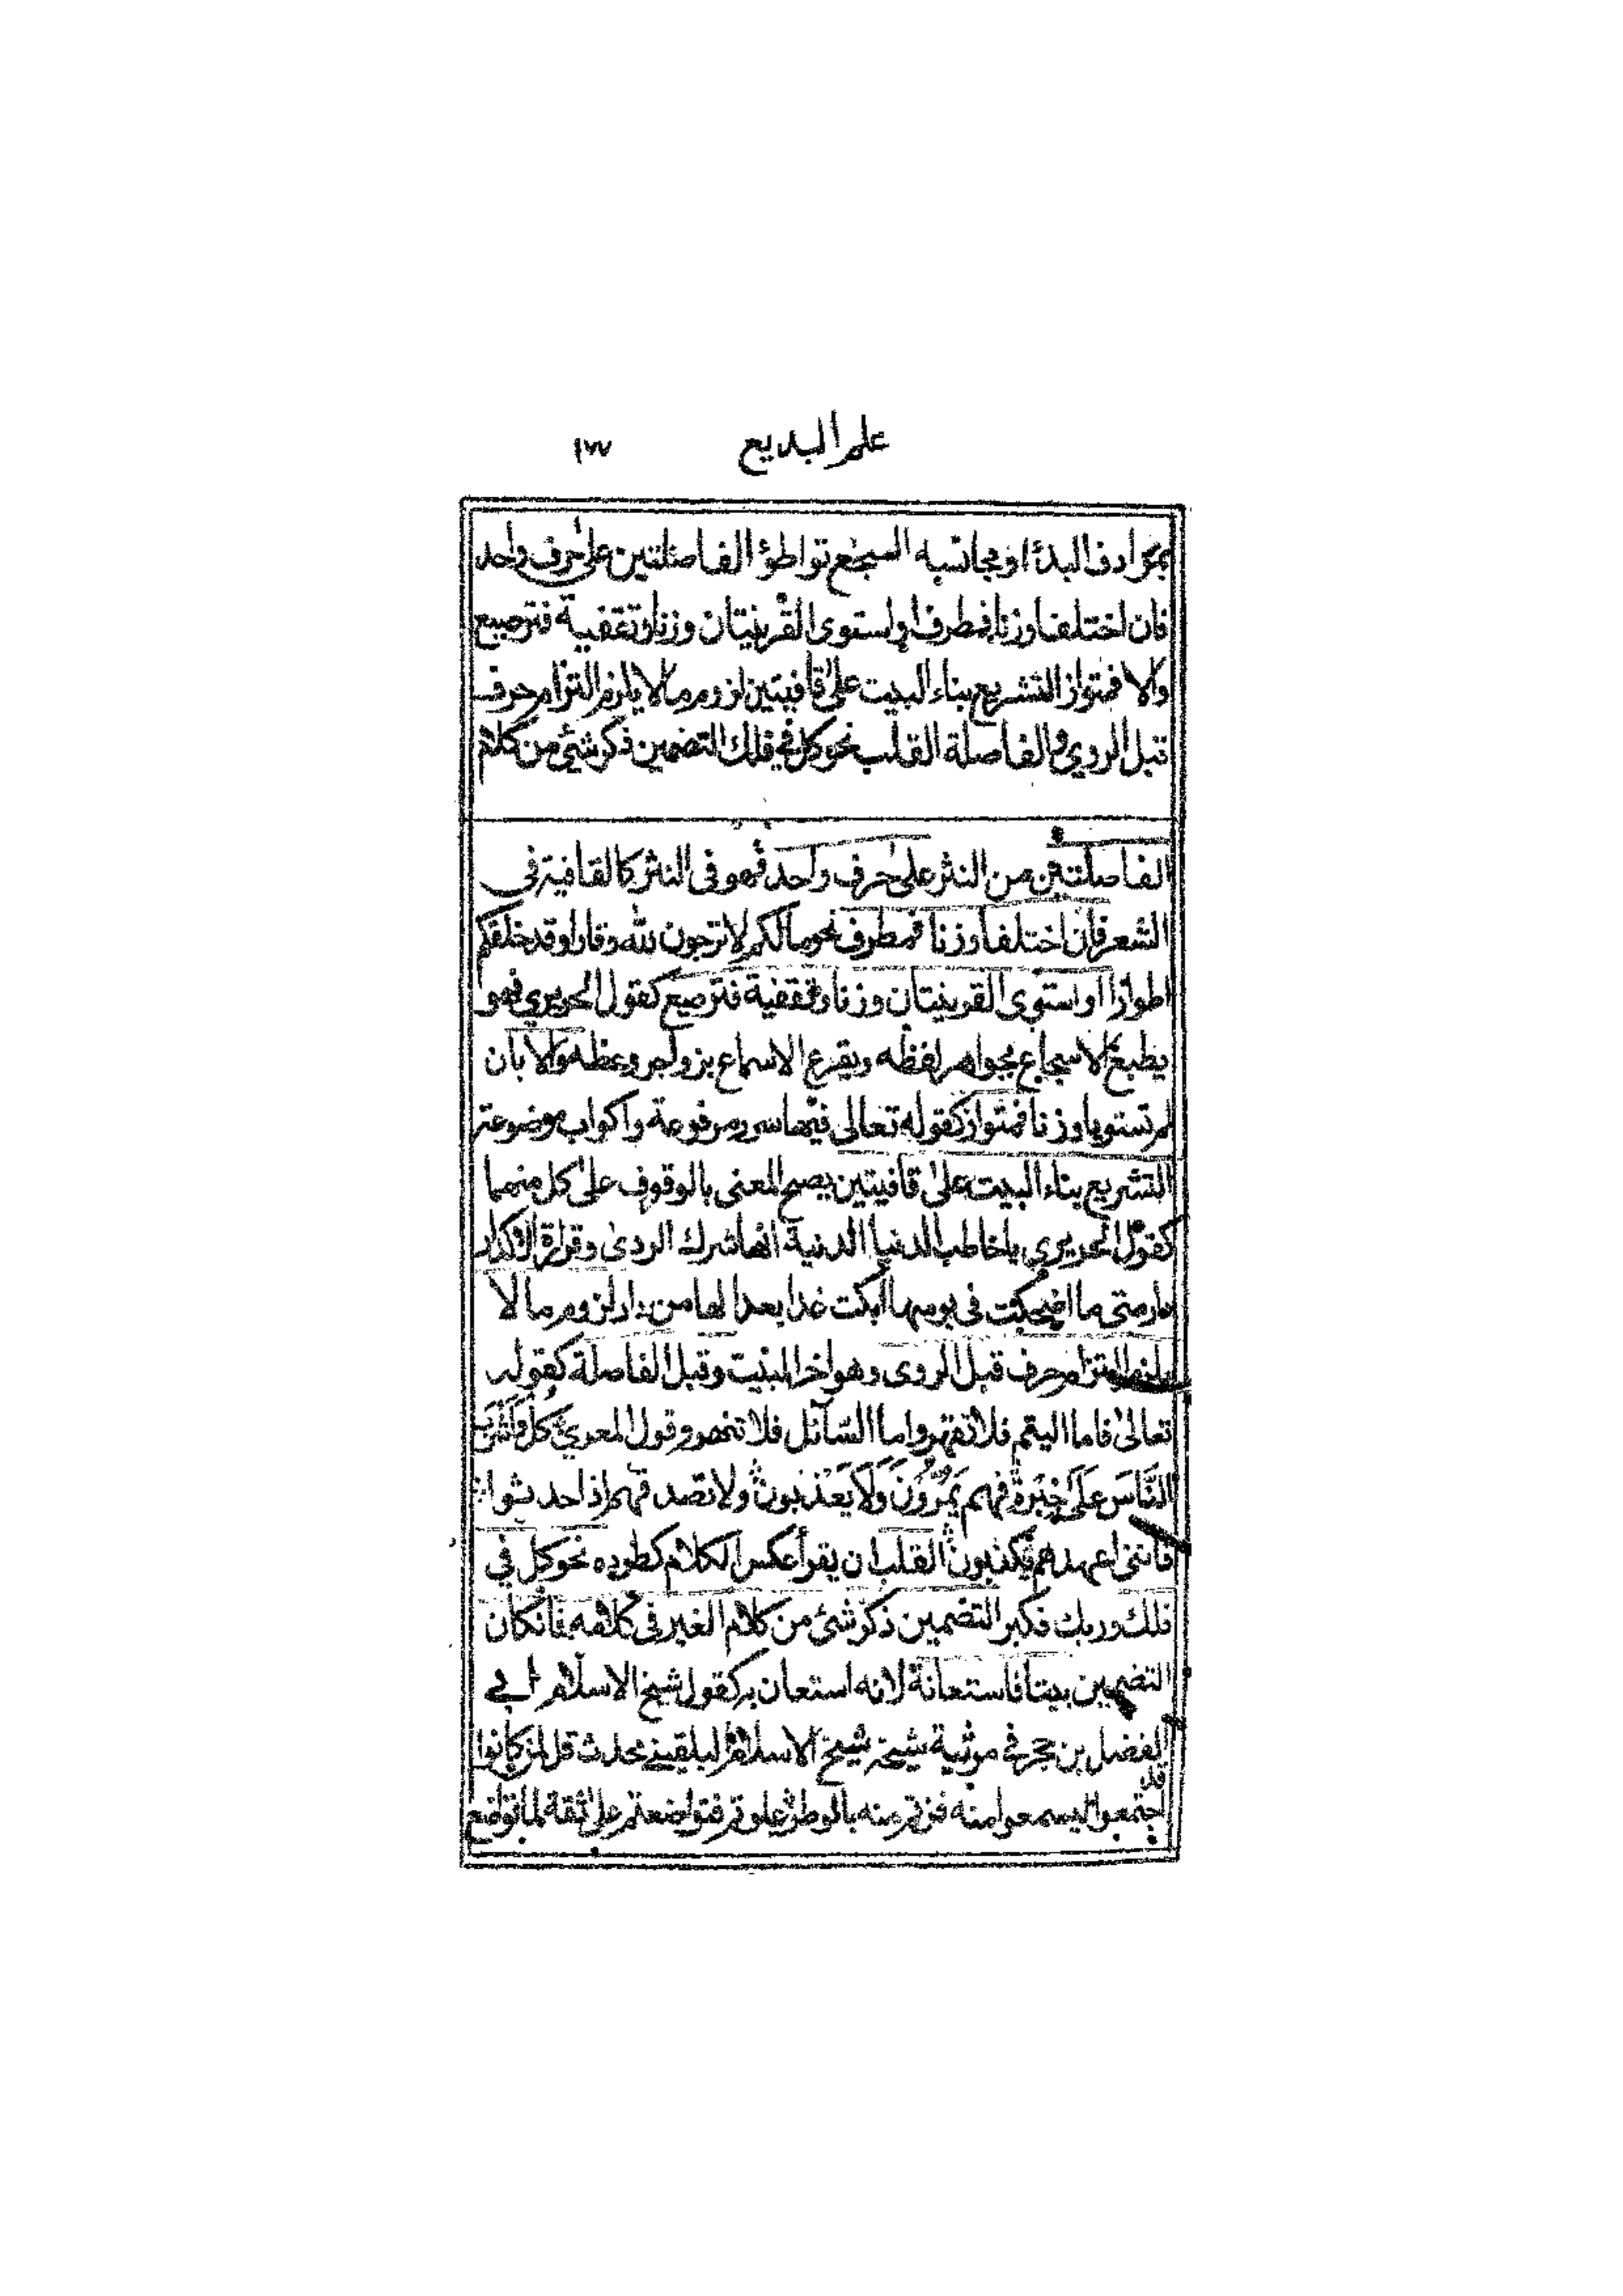 علم البديع ١٧٧
بمرادف البدأ او مجانسه السجع تواطؤ الفاصلتين على حرف واحد
فان اختلفا وزنا فمطرف او استوى القرينتان وزنا وتقفية فترصيع
والا فمتواز التشريع بناء البيت على قافيتين لزوم ما لا يلزم التزام حرف
قبل الروي والفاصلة القلب نحو كل في فلك التضمين ذكر شئ من كلام
الفاصلتين من النثر على حرف واحد فهو فى النثر كالقافية فى
الشعر فان اختلفا وزنا فمطرف نحو مالكم لا ترجون لله وقارا وقد خلقكم
اطوارا او استوى القرينتان وزنا وتقفية فترصيع كقول الحريري فهو
يطبع الاسجاع بجواهر لفظه ويقرع الاسماع بزواجر وعظه والا بان
لم تستويا وزنا فمتواز كقوله تعالى فيها سرر مرفوعة واكواب موضوعة
التشريع بناء البيت على قافيتين يصح المعنى بالوقوف على كل منهما
كقول الحريري يا خاطب الدنيا الدنية انها شرك الردى وقرارة الاكدار
دار متى ما اضحكت فى يومها ابكت غدا بعدا لها من دار لزوم ما لا
يلزم التزام حرف قبل الروى وهو اخر البيت وقبل الفاصلة كقوله
تعالى فاما اليتيم فلا تقهر واما السائل فلا تنهر وقول المعري كل واشرب
النَّاسَ عَلَى خِبْرَةٍ فهم يَمُرُّونَ وَلَا يَعْذُبونَ ولا تصدقهم اذا حدثوا
فانني اعهدهم يكذبون القلب ان يقرأ عكس الكلام كطرده نحو كل في
فلك وربك فكبر التضمين ذكر شئ من كلام الغير فى كلامه فان كان
التضمين بيتا فاستعانة لانه استعان به كقول شيخ الاسلام ابي
الفضل بن حجر في مرثية شيخه شيخ الاسلام البلقيني محدث قل لمن كانوا
قد اجتمعوا ليسمعوا منه فزتم منه بالوطر علوتم فتواضعتم على ثقة لما تواضع